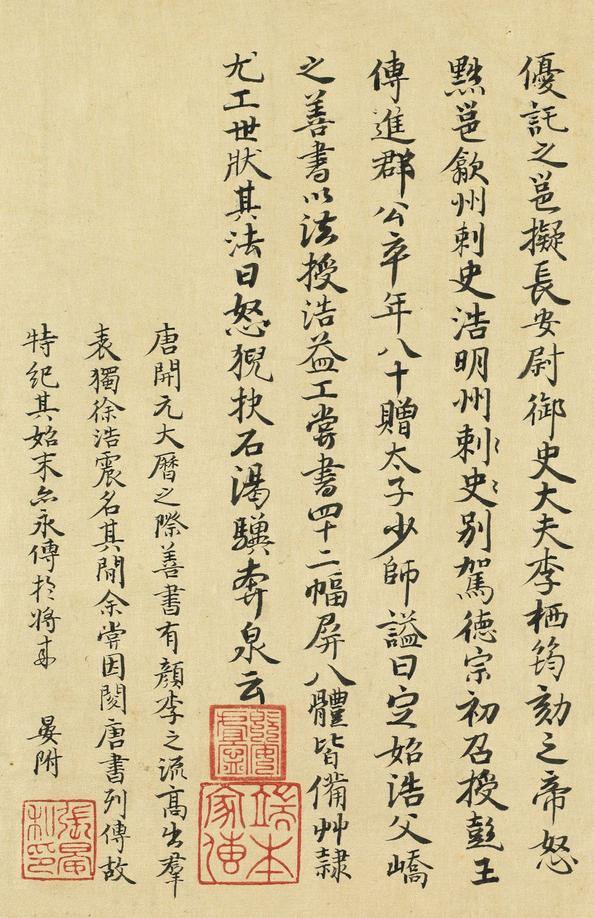 優託之邕擬長安尉御史大夫李栖筠劾之帝怒
黜邕歙州刺史浩明州刺史別駕德宗初召授彭王
傅進群公卒年八十贈太子少師謚曰定始浩父嶠
之善書以法授浩益工嘗書四十二幅屏八體皆備艸隸
尤工世狀其法曰怒猊抉石渴驥奔泉云
唐開元大曆之際善書有顏李之流高出羣
表獨徐浩震名其間余嘗因閱唐書列傳故
特紀其始末亦永傳於將來 晏附
端本家傳
張晏私印